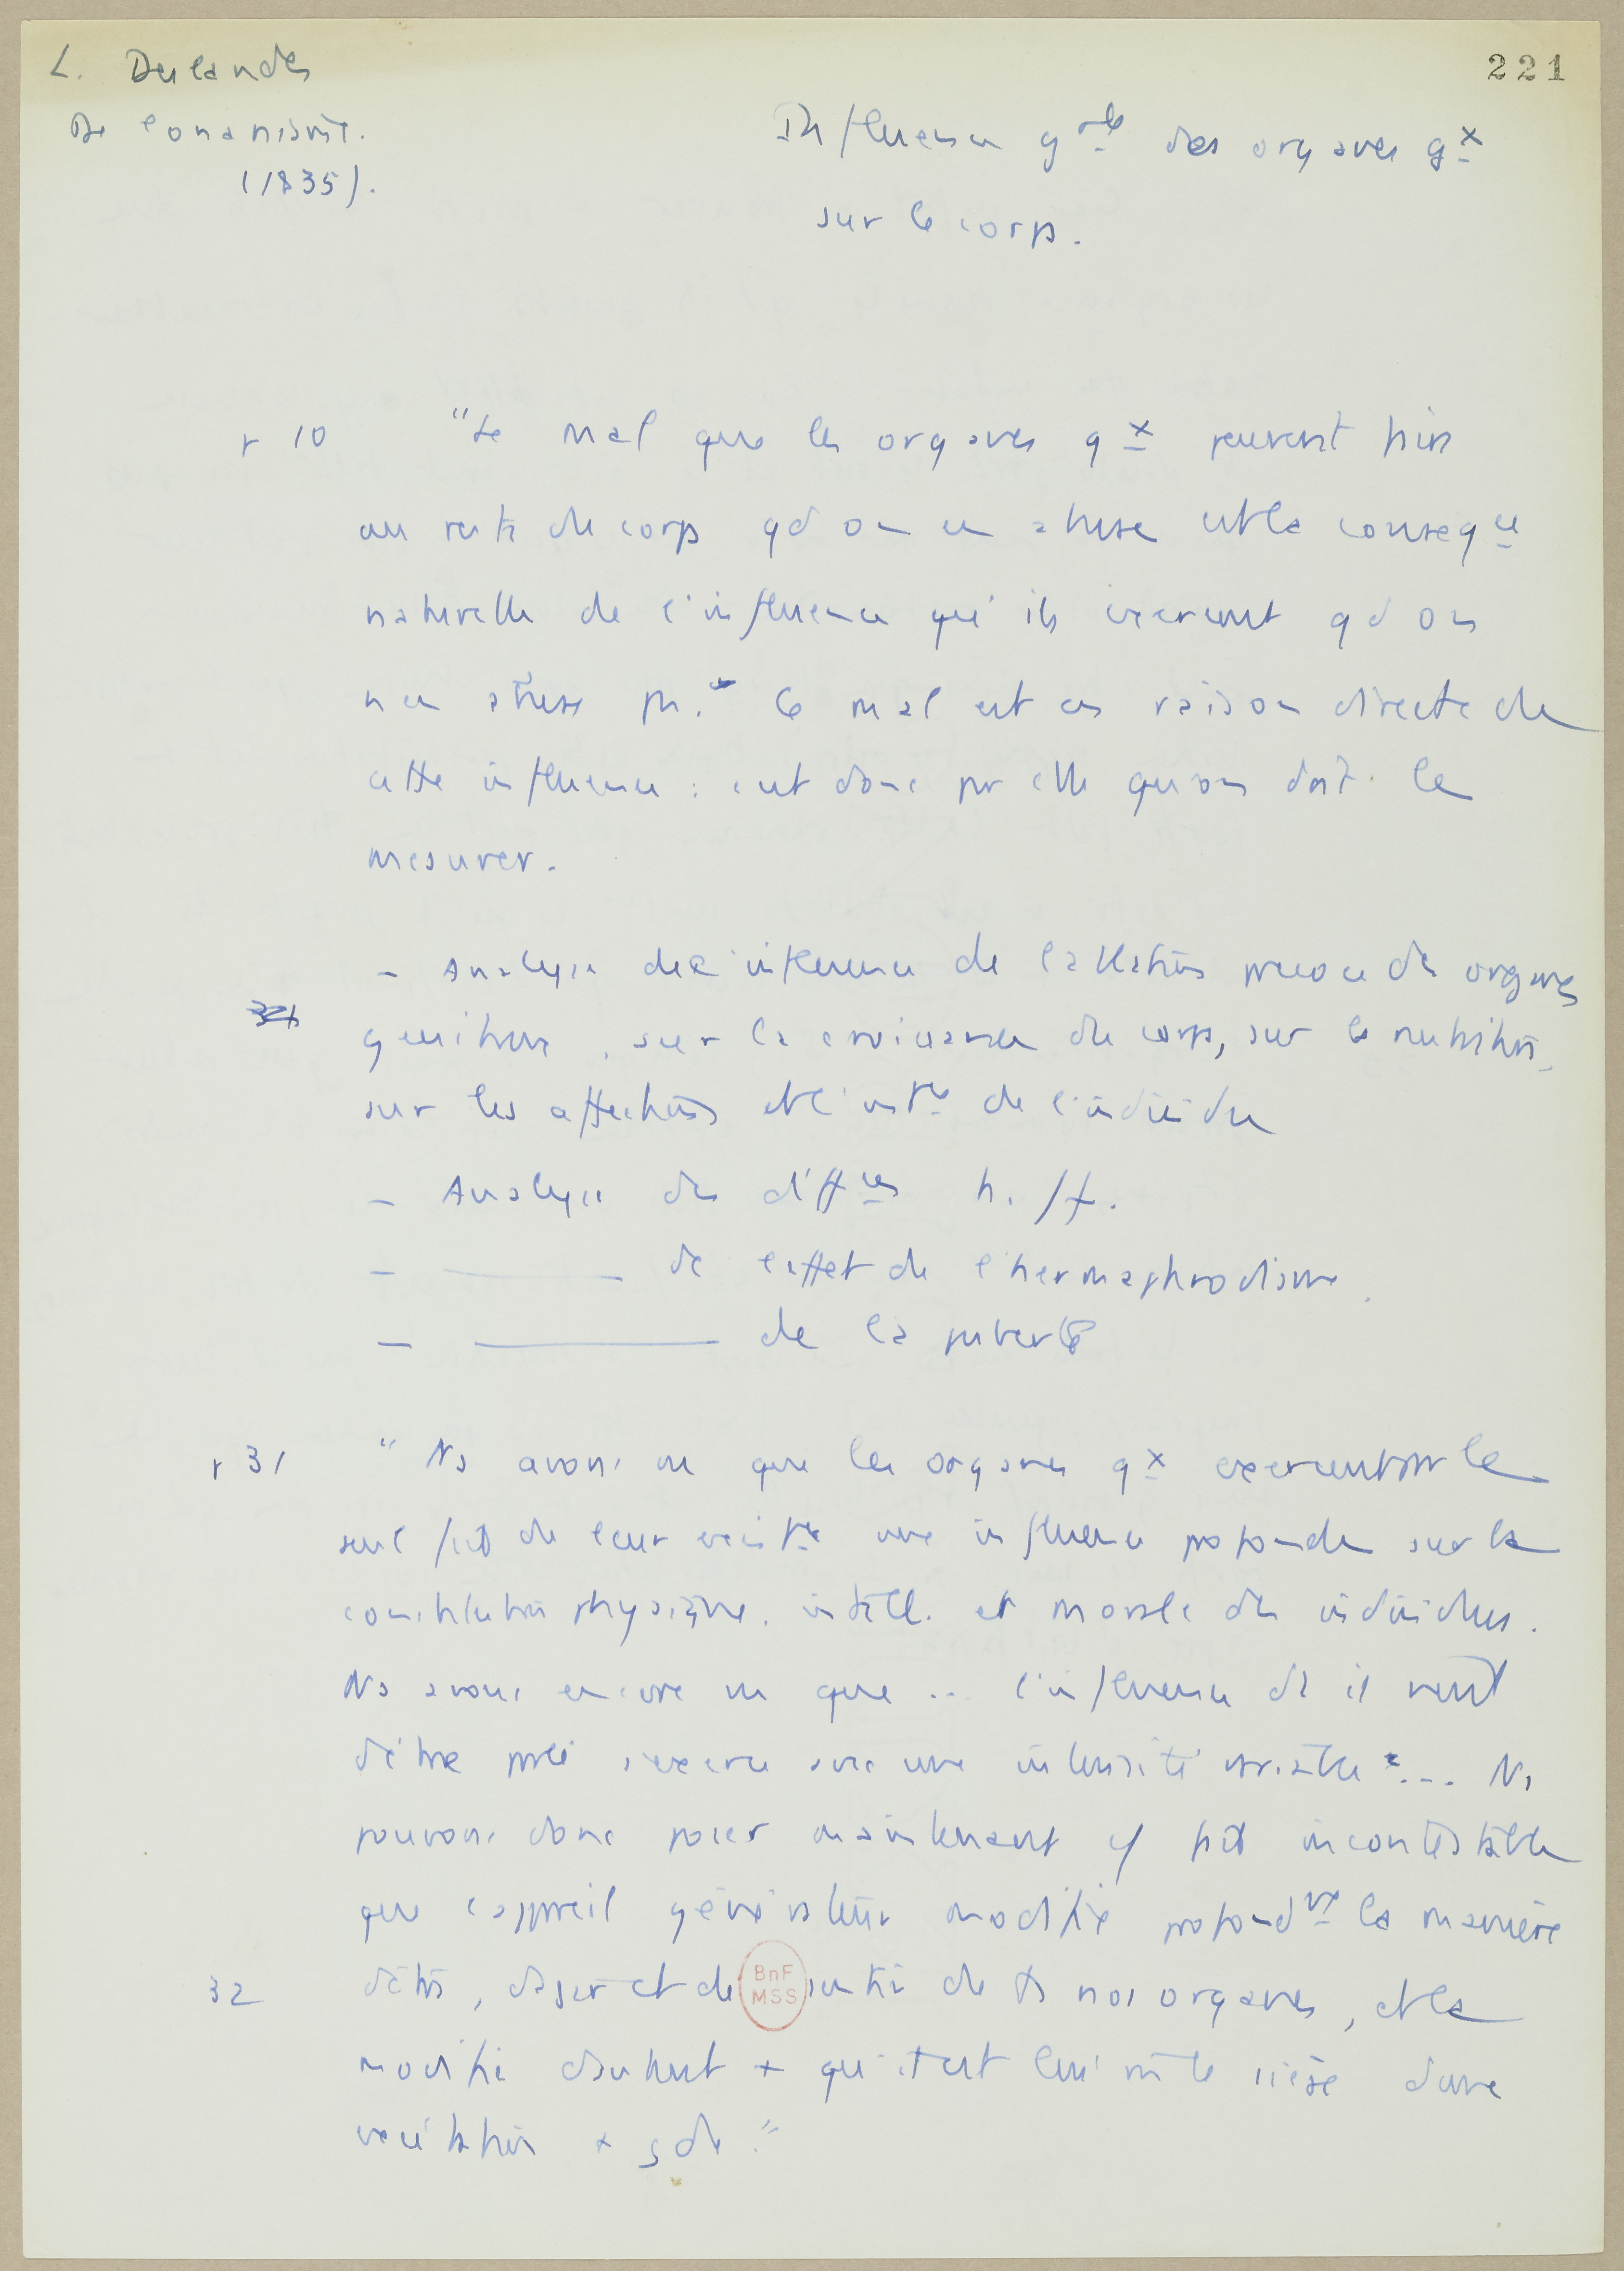 L. Deslandes
221
De l'onanisme.
(1835).
Influence gnle des organes gx
sur le corps.
p 10 "Le mal que les organes gx peuvent faire
au reste du corps qd on en abuse est la conseqce
naturelle de l'influence qu'ils exercent qd on
n'en abuse pas. Le mal est en raison directe de
cette influence : c'est donc par elle qu'on doit le
mesurer.
- Analyse de l'influence de l'ablation precoce des organes
genitaux, sur la croissance du corps, sur la nutrition,
sur les affections et l'intce de l'individu
- Analyse des diffces h./f.
- ——— de l'effet de l'hermaphrodisme.
- ——— de la puberté
p 31 "Ns avons vu que les organes gx exercent par le
seul fait de leur existce une influence profonde sur la
constitution physique, intell. et morale des individus.
Ns avons encore vu que ... l'influence dt il vient
d'être parlé s'exerce avec une intensité variable ... Ns
pouvons donc poser maintenant c/ fait incontestable
que l'appareil générateur modifie profondmt la manière
32 d'être, d'agir et de sentir de ts nos organes, et la
modifie d'autant + qu'il est lui même le siège d'une
excitation + gde."
BnF
MSS